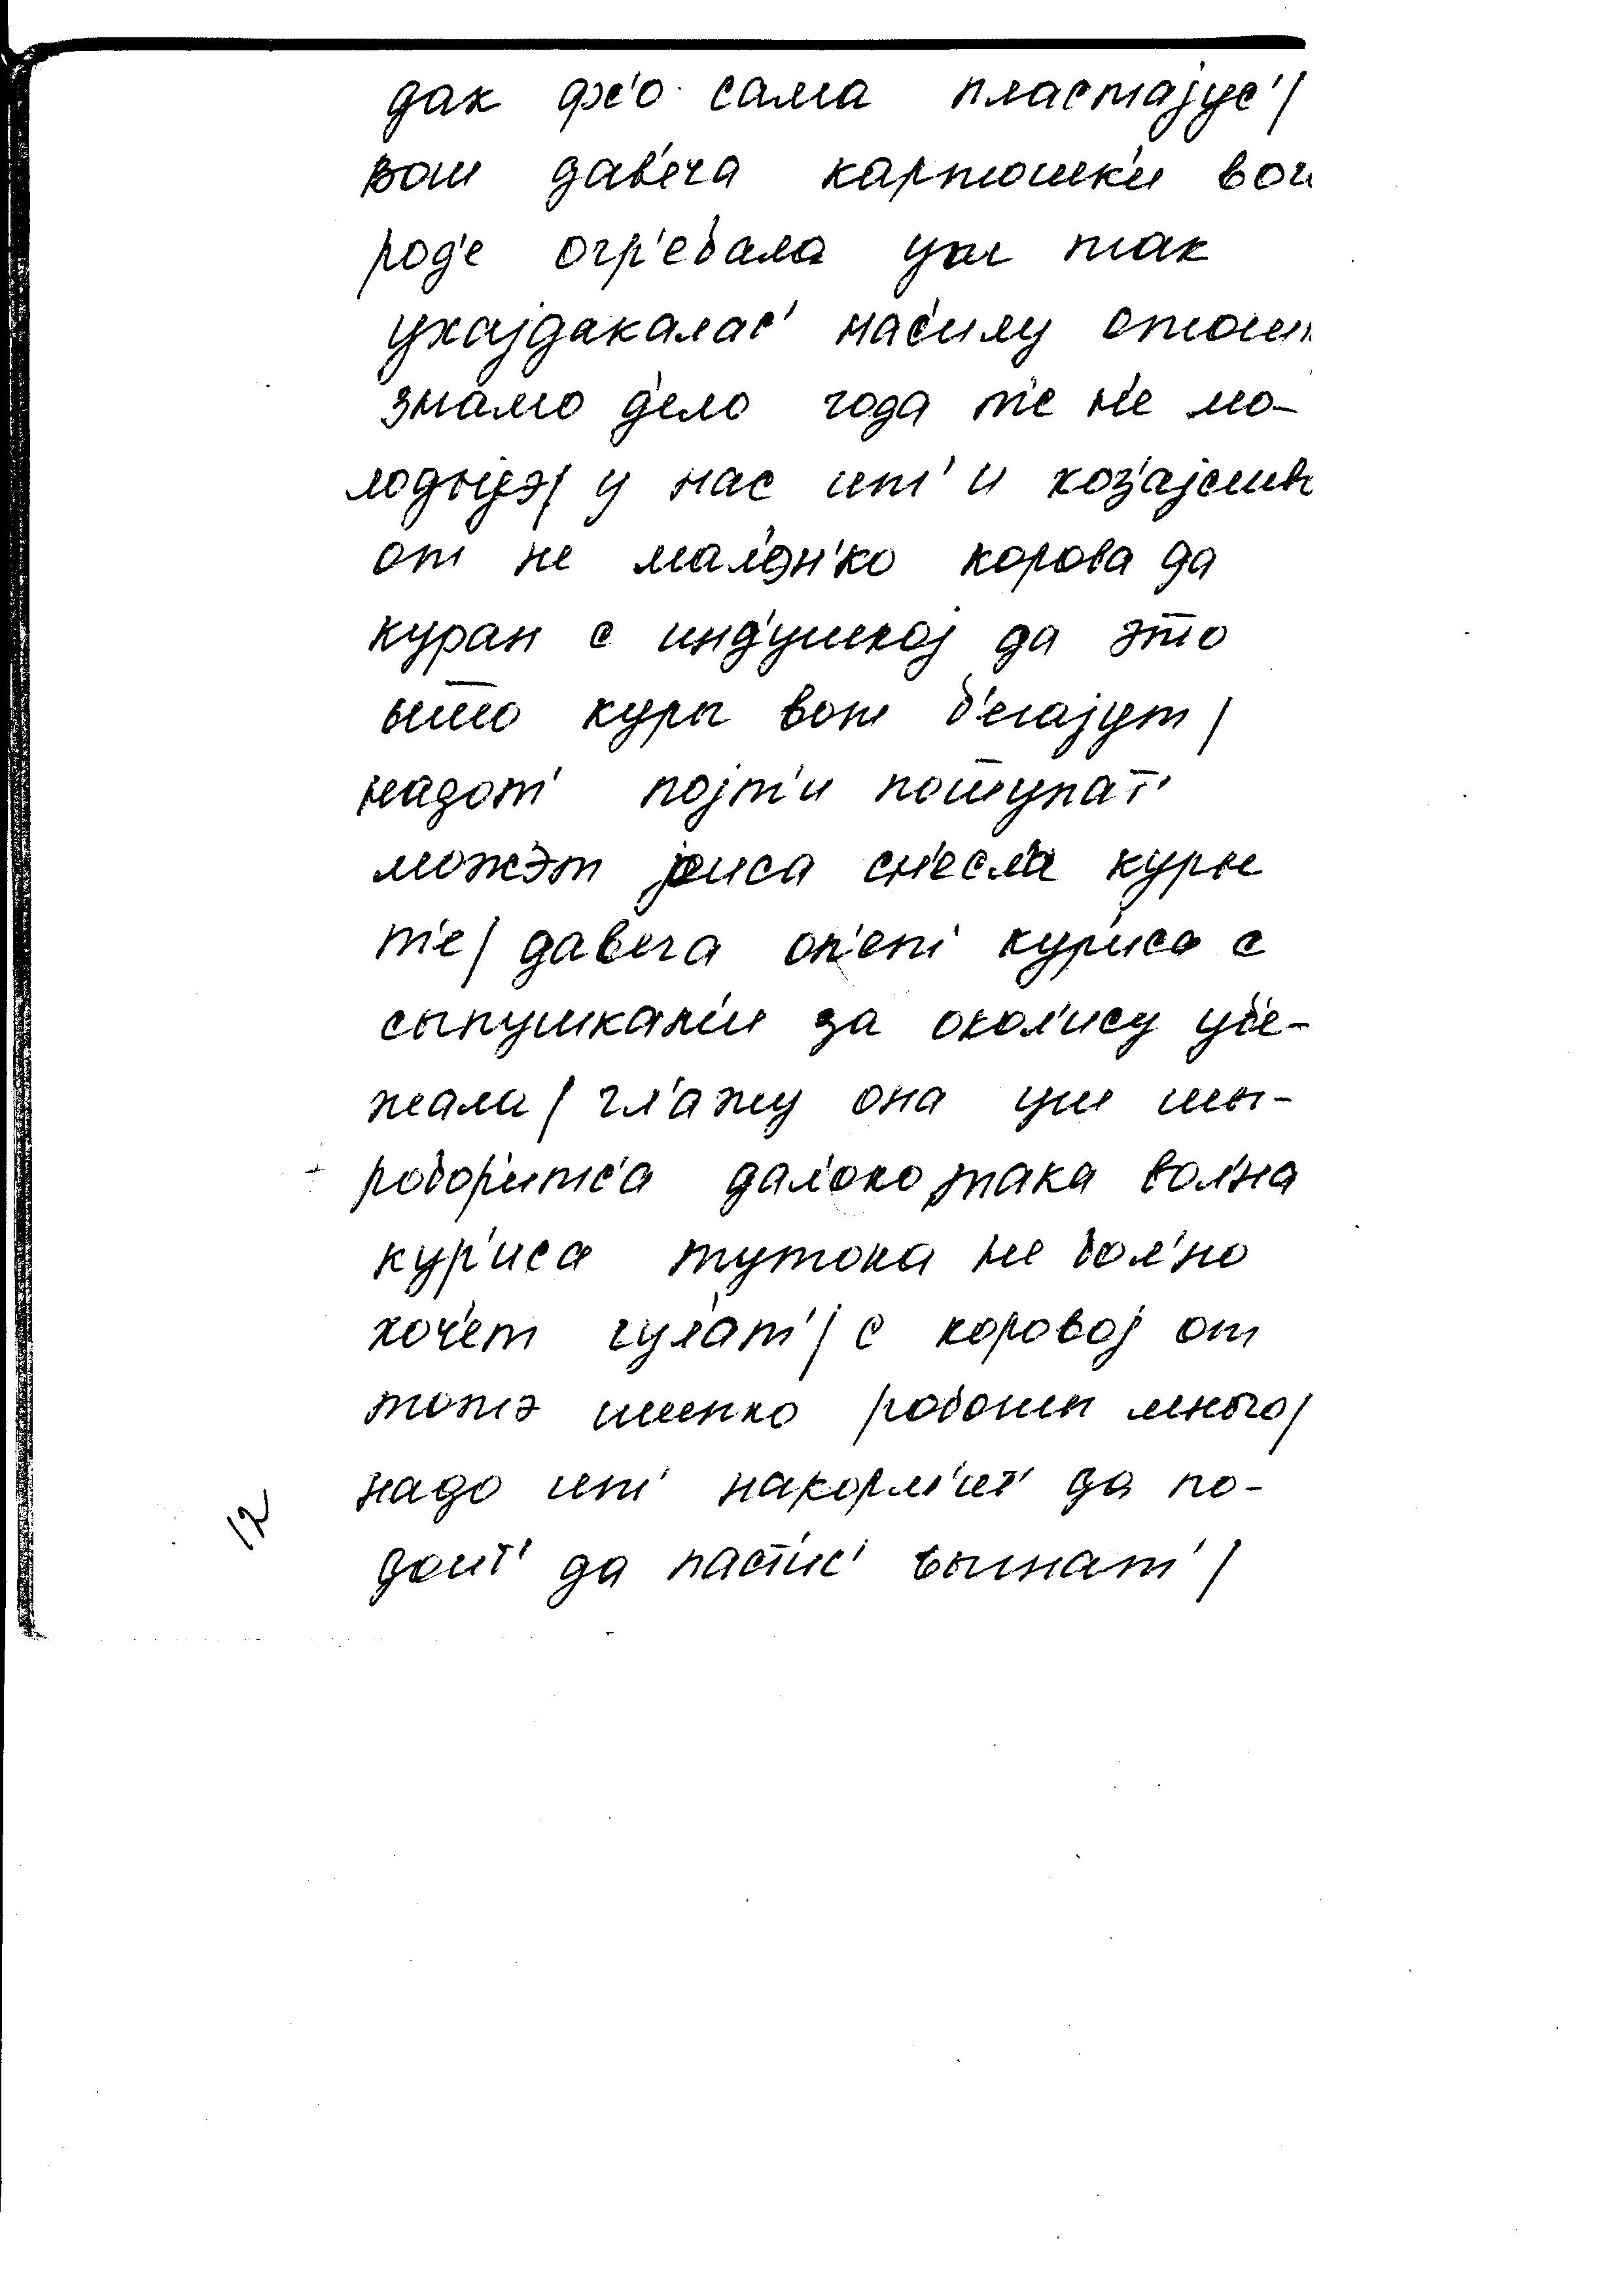 дак фс'о сама пластајус'/
вот дав'еча картошк'и вог
род'е огр'ебала уш так
ухајдакалас' нас'илу отош
знамо д'ело года т'е н'е мо-
лодыјэ/ у нас ит' и хоз'ајств
от не мал'эн'ко корова да
куран с инд'ушкој да это
ышто куры вот б'егајут/
надот' појт'и пошшупат'
можэт јаиса сн'есл'и куры
т'е/ давеча оп'ет' кур'иса с
сыпушкам'и за окол'ису уб'е-
жала/ гл'ажу она уш шы-
робор'итс'а дал'око така вол'на
кур'иса тутока не бол'но
хоч'ет гул'ат'/ с коровој от
тожэ шыпко работы много/
надо ит' накорм'ит' да по-
доит' да паст'ис' выгнат'/
12